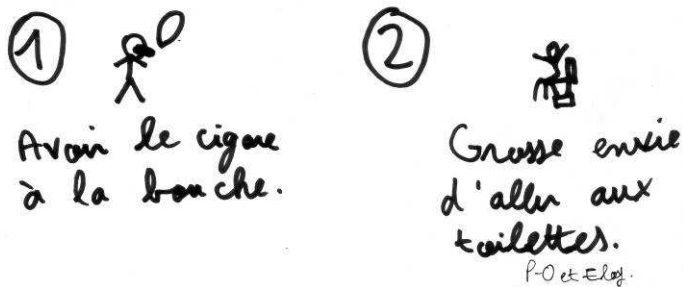 1
Avoir le cigare
à la bouche.
2
Grosse envie
d'aller aux
toilettes.
P-O et Eloy.